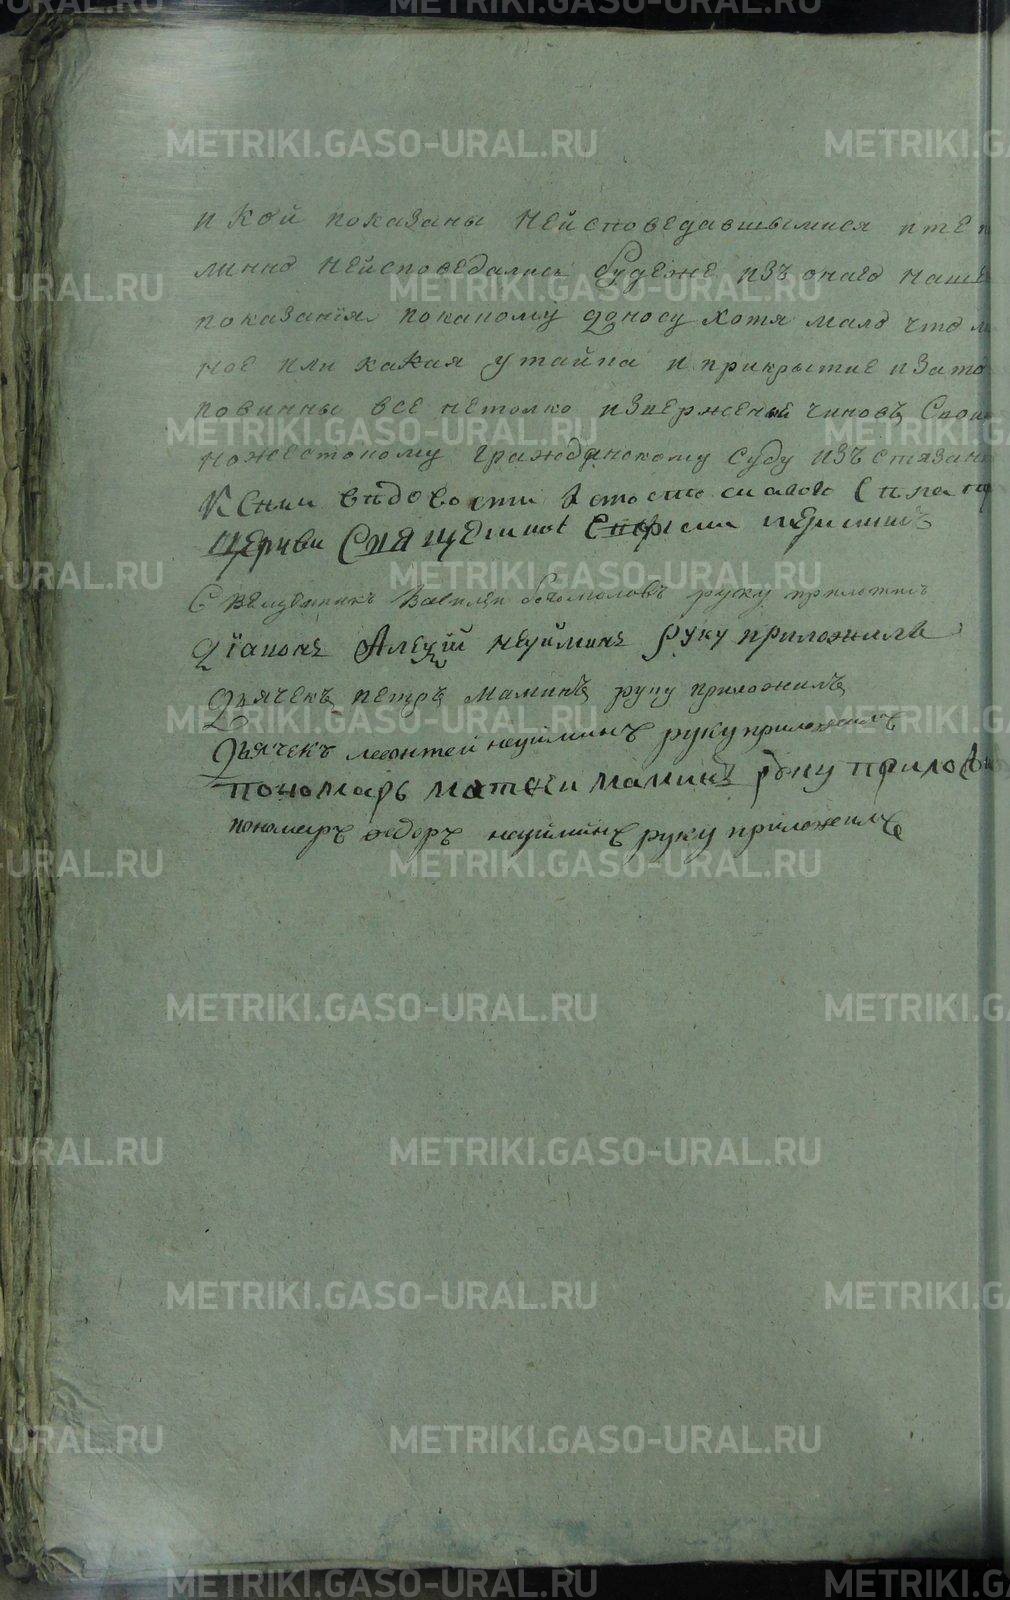 и кои показаны неисповедавшымися и те п
линно неисповедались будеже изъ онаго наше
показанїя покакому доносу хотя мало что
ное или какая утайка и прикрытие и зато
повинны все нетолко извержению чиновъ Свои
ножестокому гражданскому суду изъстязани
К Сеи ведомости
церкви Священно
Священникъ Василеи Богомоловъ руку приложилъ
Дїаконъ Алеѯїй неуйминъ руку приложилъ
Дьячекъ петръ маминъ руку приложилъ
Дьячекъ леонтей неуйминъ руку приложилъ
пономарь матвеи маминъ руку прило
пономаръ ѳедоръ неуйминъ руку приложилъ
METRIKI.GASO-URAL.RU